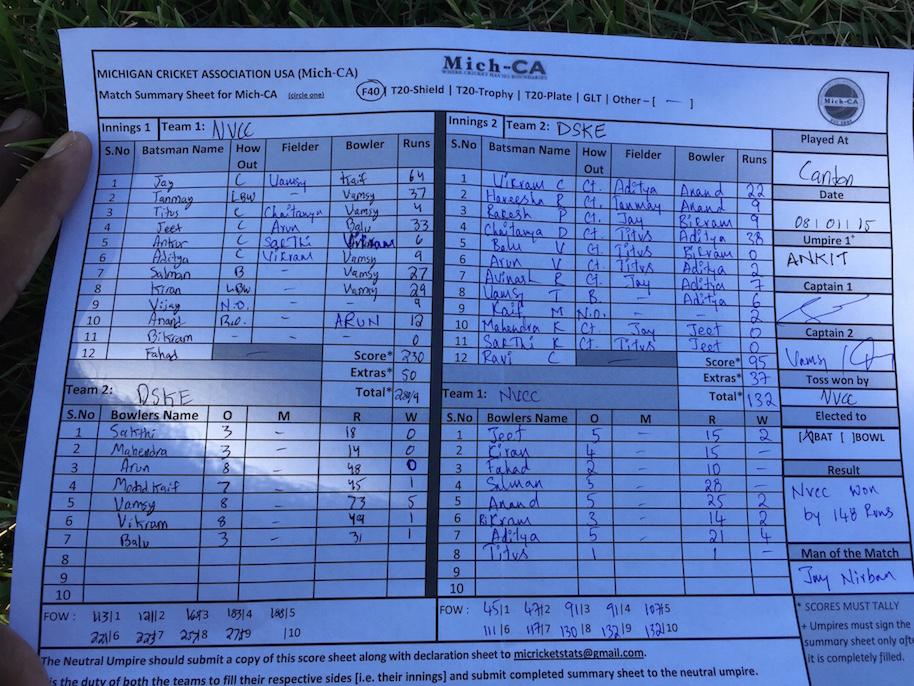 MICHIGAN CRICKET ASSOCIATION USA (Mich-CA)
Mich-CA
WHERE CRICKET HAS NO BOUNDARIES
Match Summary Sheet for Mich-CA (circle one) F40 | T20-Shield | T20-Trophy | T20-Plate | GLT | Other – [ — ]
Mich-CA
Innings 1 Team 1: NVCC
S.No Batsman Name How Out Fielder Bowler Runs
1 Jay C Vamsy Kaif 64
2 Tanmay LBW – Vamsy 37
3 Titus C Chaitanya Vamsy 4
4 Jeet C Arun Balu 33
5 Ankur C SakThi Vikram 6
6 Aditya C Vikram Vamsy 9
7 Salman B – Vamsy 27
8 Kiran LBW – Vamsy 29
9 Vijay N.O. – – 9
10 Anand R.O. – ARUN 12
11 Bikram – – – 0
12 Fahad —
Score* 230
Extras* 50
Total* /9
Team 2: DSKE
S.No Bowlers Name O M R W
1 Sakthi 3 – 18 0
2 Mahendra 3 – 14 0
3 Arun 8 – 48 0
4 Mohd Kaif 7 – 45 1
5 Vamsy 8 – 73 5
6 Vikram 8 – 49 1
7 Balu 3 – 31 1
8
9
10
FOW : 113/1 /2 /3 183/4 188/5
221/6 /7 /8 /9 /10
Innings 2 Team 2: DSKE
S.No Batsman Name How Out Fielder Bowler Runs
1 Vikram C Ct. Aditya Anand 22
2 Hareesha R Ct. Tanmay Anand 9
3 Rakesh P Ct. Jay Bikram 9
4 Chaitanya D Ct. Titus Aditya 38
5 Balu V Ct Titus Bikram 0
6 Arun V Ct Titus Aditya 2
7 Avinash R Ct. Jay Aditya 7
8 Vamsy T B. – Aditya 6
9 Kaif M N.O. – – 2
10 Mahendra K Ct. Jay Jeet 0
11 SakThi K Ct. Titus Jeet 0
12 Ravi C —
Score* 95
Extras* 37
Total* 132
Team 1: NVCC
S.No Bowlers Name O M R W
1 Jeet 5 – 15 2
2 Kiran 4 – 15 –
3 Fahad 2 – 10 –
4 Salman 5 – 28 –
5 Anand 5 – 25 2
6 Bikram 3 – 14 2
7 Aditya 5 – 21 4
8 Titus 1 1 –
9
10
FOW : 45/1 47/2 91/3 91/4 107/5
111/6 117/7 130/8 132/9 132/10
Played At
Canton
Date
08/01/15
Umpire 1*
ANKIT
Captain 1
Captain 2
Vamsy
Toss won by
NVCC
Elected to
[X]BAT [ ]BOWL
Result
NVCC won
by 148 Runs
Man of the Match
Jay Nirban
* SCORES MUST TALLY
+ Umpires must sign the
summary sheet only afte
it is completely filled.
The Neutral Umpire should submit a copy of this score sheet along with declaration sheet to micricketstats@gmail.com.
is the duty of both the teams to fill their respective sides [i.e. their innings] and submit completed summary sheet to the neutral umpire.